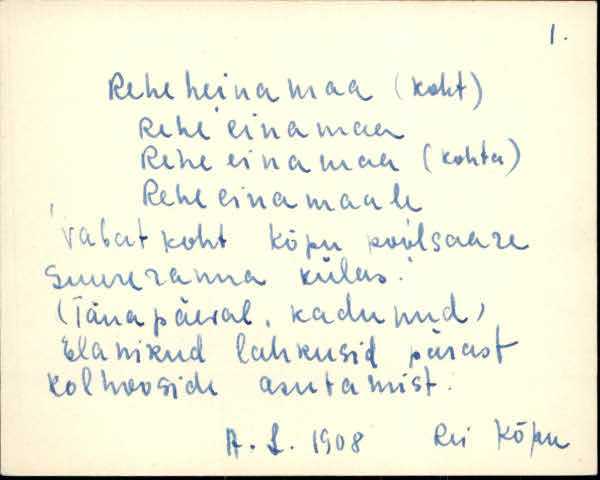 1.
Rehe heinamaa (koht)
Rehe'einamaa
Rehe'einamaa (kohta)
Rehe einamaale
'vabat koht Kõpu poolsaare
Suureranna külas.
(Tänapäeval, kadunud)
Elanikud lahkusid pärast
kolhooside asutamist.
A. L. 1908 Rei Kõpu